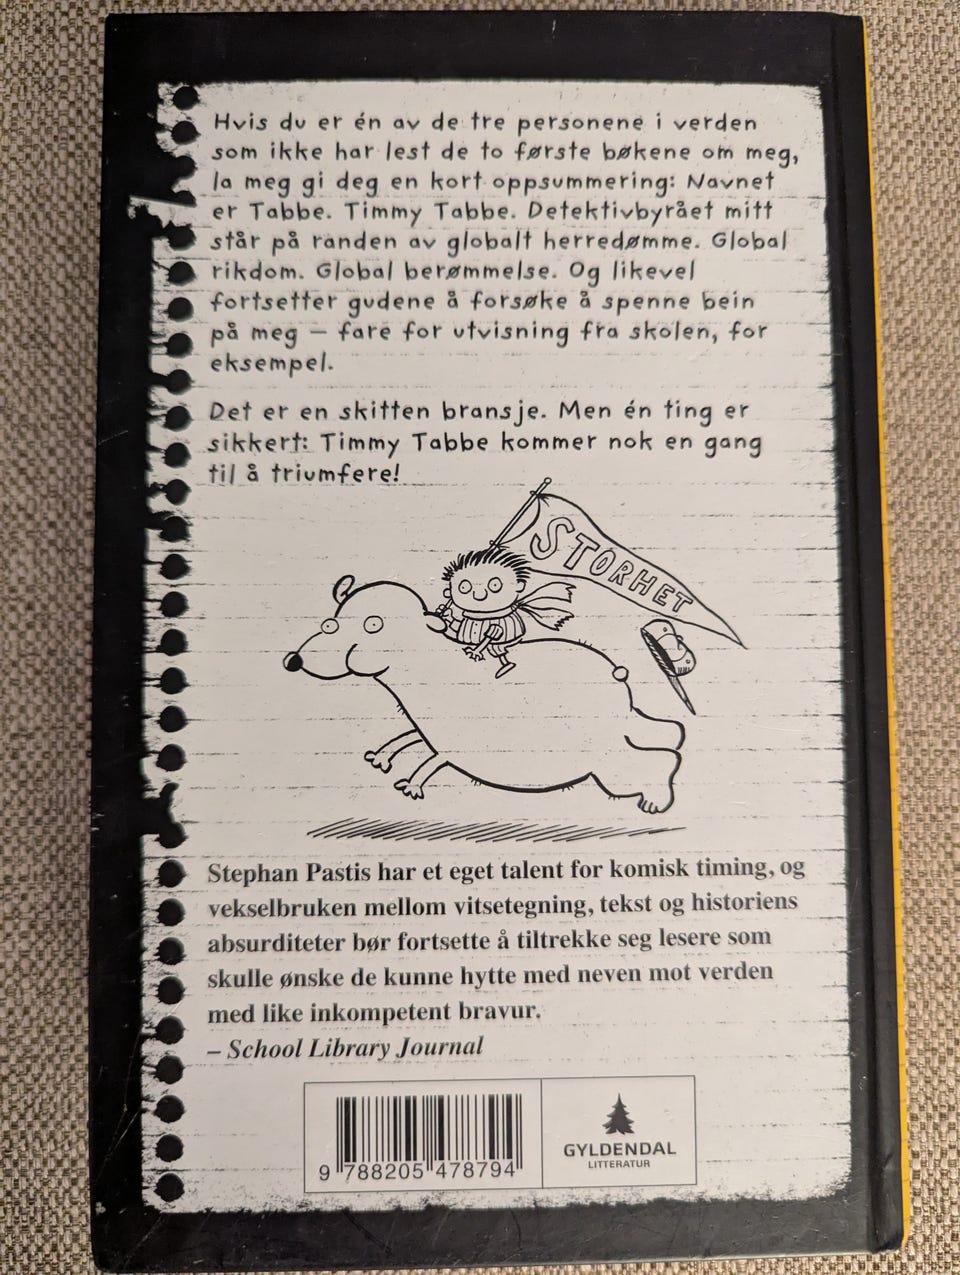 Hvis du er én av de tre personene i verden
som ikke har lest de to første bøkene om meg,
la meg gi deg en kort oppsummering: Navnet
er Tabbe. Timmy Tabbe. Detektivbyrået mitt
står på randen av globalt herredømme. Global
rikdom. Global berømmelse. Og likevel
fortsetter gudene å forsøke å spenne bein
på meg – fare for utvisning fra skolen, for
eksempel.
Det er en skitten bransje. Men én ting er
sikkert: Timmy Tabbe kommer nok en gang
til å triumfere!
STORHET
Stephan Pastis har et eget talent for komisk timing, og
vekselbruken mellom vitsetegning, tekst og historiens
absurditeter bør fortsette å tiltrekke seg lesere som
skulle ønske de kunne hytte med neven mot verden
med like inkompetent bravur.
– School Library Journal
9 788205 478794
GYLDENDAL
LITTERATUR